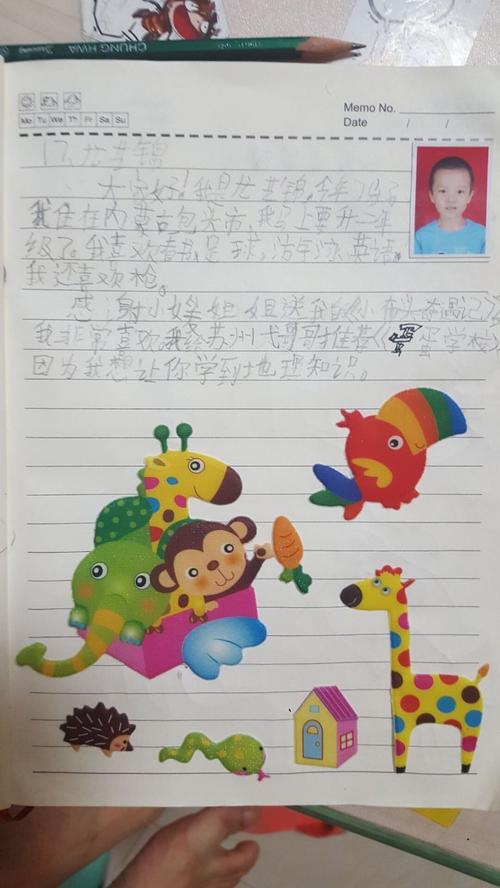 CHUNG HWA
Memo No.
Mo Tu We Th Fr Sa Su
Date / /
17、尤芸锦
大家好！我是尤芸锦，今年7岁了
我住在内蒙古包头市，我马上要升二年
级了。我喜欢看书、足球、游泳、英语。
我还喜欢枪。
感谢小婐姐姐送我的《小布头奇遇记》，
我非常喜欢。我给苏州弋哥哥推荐《学校》
因为我想让你学到地理知识。